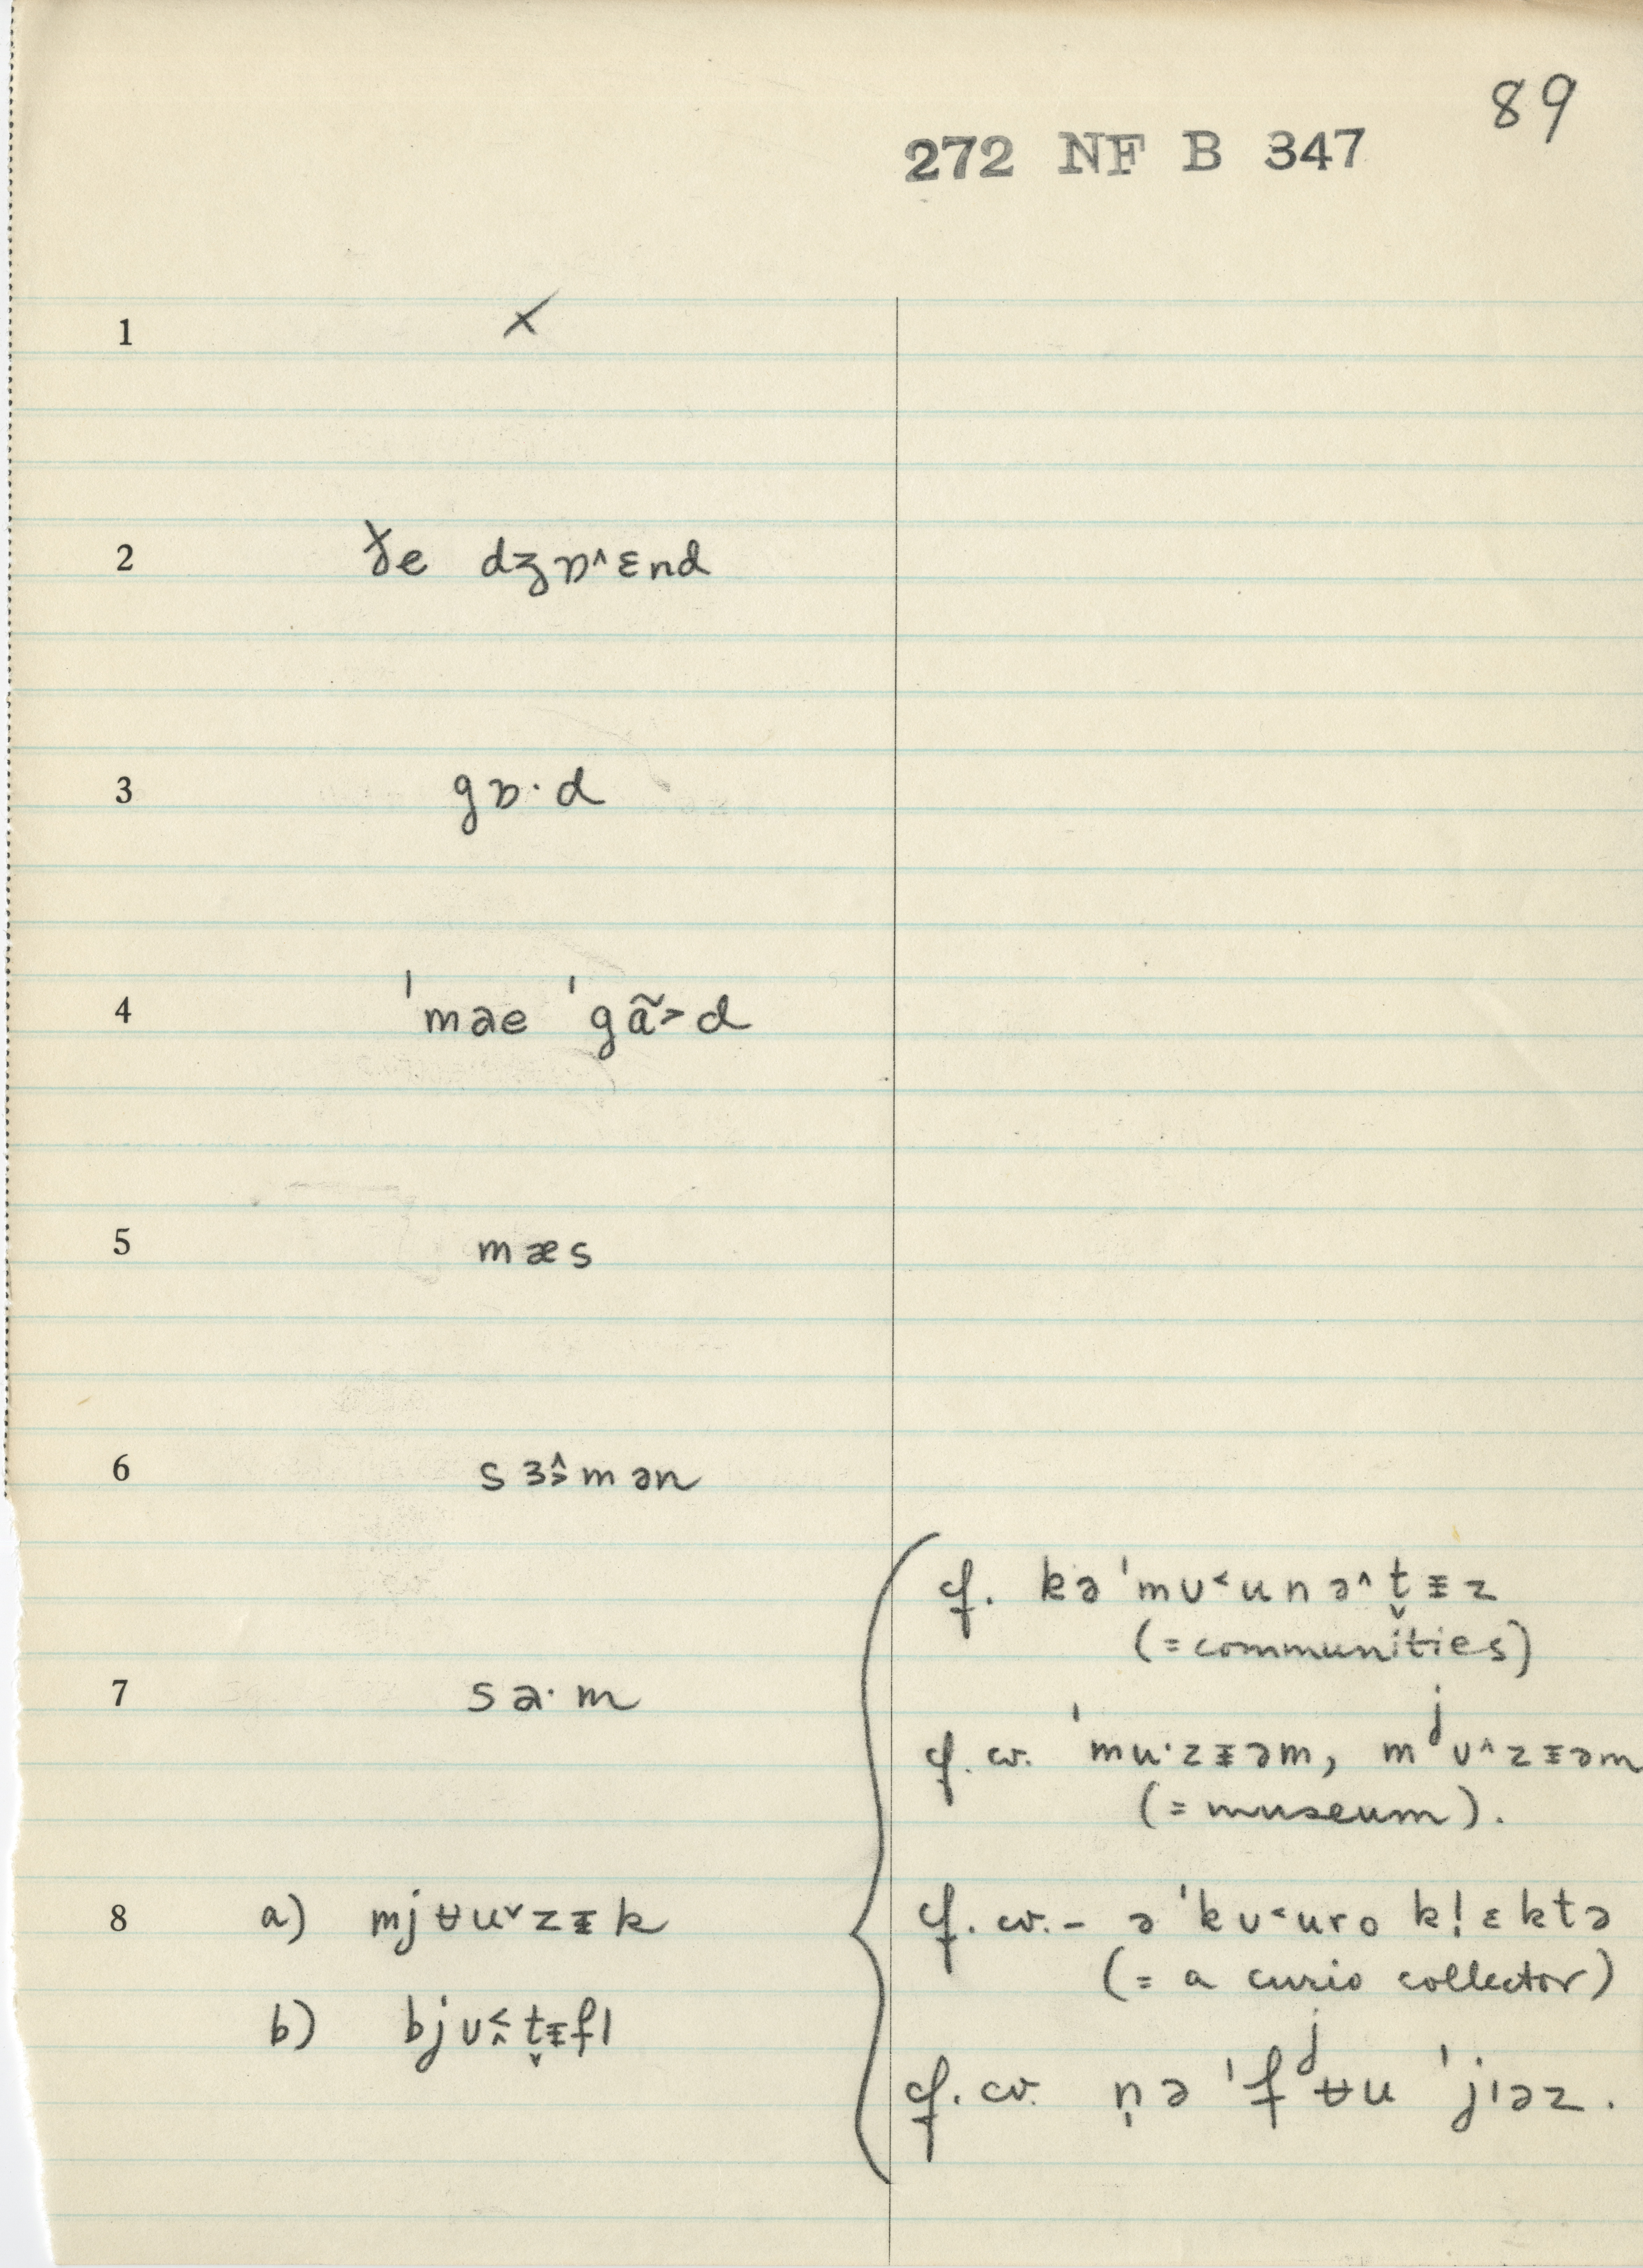 89
272 NF B 347
1 ×
2 ɣ̵e dʒɒ^ɛnd
3 gɒ·d
4 ˈmae ˈgã˃d
5 mæs
6 sɜ˄˃mən
cf. kəˈmʊ˂unə^t̬ɪ̵z
(= communities)
7 sa·m
cf. cv. ˈmu·zɪ̵əm, mʲʊ^zɪ̵əm
(= museum).
8 a) mjʉu˅zɪ̵k
cf. cv. – əˈkʊ˂uro kl̩ɛktə
(= a curio collector)
b) bjʊ˂˄t̬ɪ̵fl
cf. cv. n̩əˈfʲʉu ˈjɪəz.